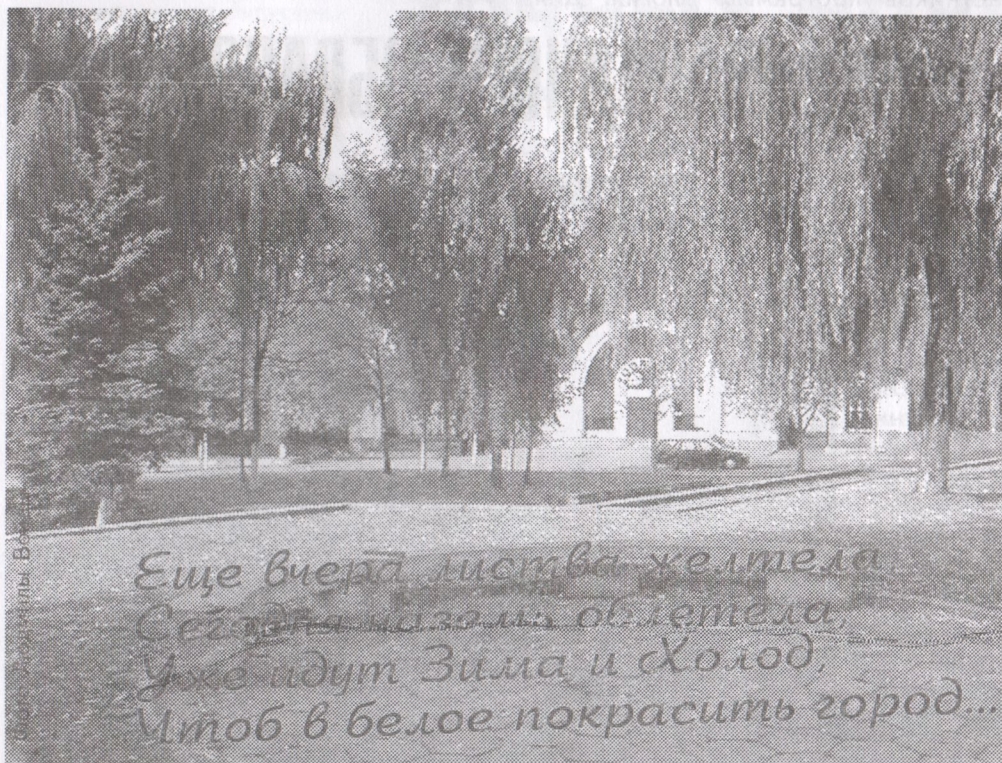 Еще вчера листва желтела,
Сегодня наземь облетела,
Уже идут Зима и Холод,
Чтоб в белое покрасить город...
Фото Людмилы